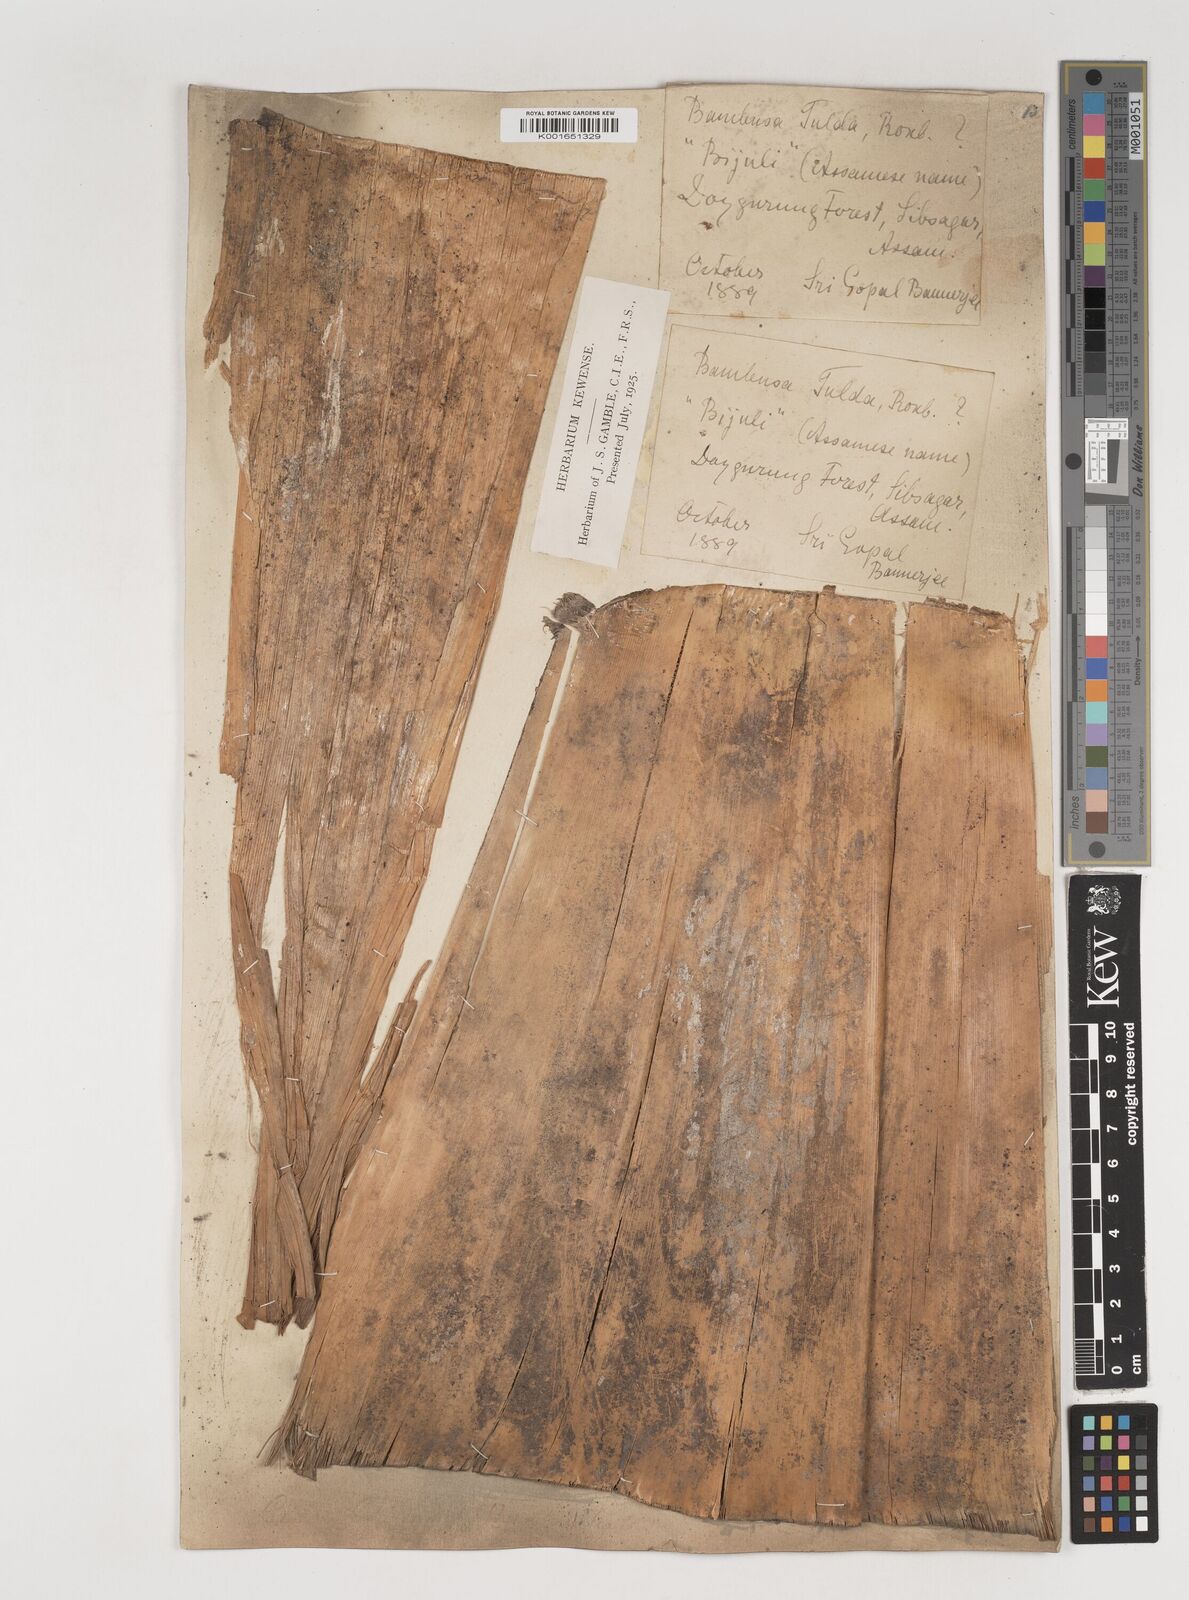 ROYAL BOTANIC GARDENS KEW
K001651329
Bambusa Tulda, Roxb. ?
"Bijuli" (Assamese name)
Doygurung Forest, Sibsagar,
Assam.
October
1889
Sri Gopal Bannerjee
HERBARIUM KEWENSE.
Herbarium of J. S. GAMBLE, C.I.E., F.R.S.,
Presented July, 1925.
Bambusa Tulda, Roxb. ?
"Bijuli" (Assamese name)
Doygurung Forest, Sibsagar,
Assam.
October
1889
Sri Gopal
Bannerjee
centimeters
M001051
Don Williams
Density
inches
Royal Botanic Gardens
Kew
0 1 2 3 4 5 6 7 8 9 10
cm
copyright reserved